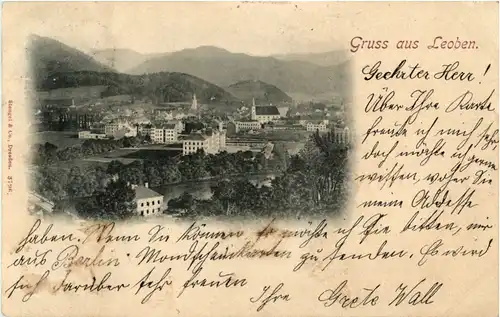 Gruss aus Leoben.
Geehrter Herr!
Über Ihre Karte
freute ich mich sehr
doch möchte ich gerne
wissen, woher Sie
meine Adresse
haben. Wenn Sie können so möchte ich Sie bitten, mir
aus "Berlin" Mondscheinkarten zu senden. Es wird
sich darüber sehr freuen
Ihre Grete Wall
Stengel & Co., Dresden. 3796.